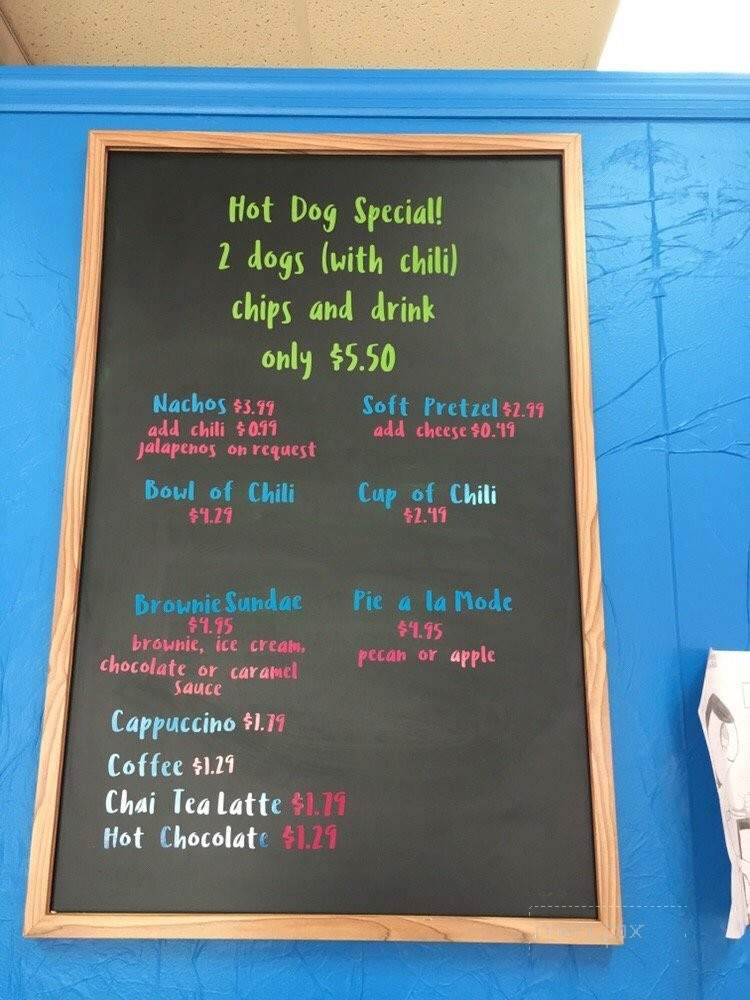 Hot Dog Special!
2 dogs (with chili)
chips and drink
only $5.50
Nachos $3.99
add chili $0.99
jalapenos on request
Soft Pretzel $2.99
add cheese $0.49
Bowl of Chili
$4.29
Cup of Chili
$2.49
Brownie Sundae
$4.95
brownie, ice cream,
chocolate or caramel
sauce
Pie a la Mode
$4.95
pecan or apple
Cappuccino $1.79
Coffee $1.29
Chai Tea Latte $1.79
Hot Chocolate $1.29